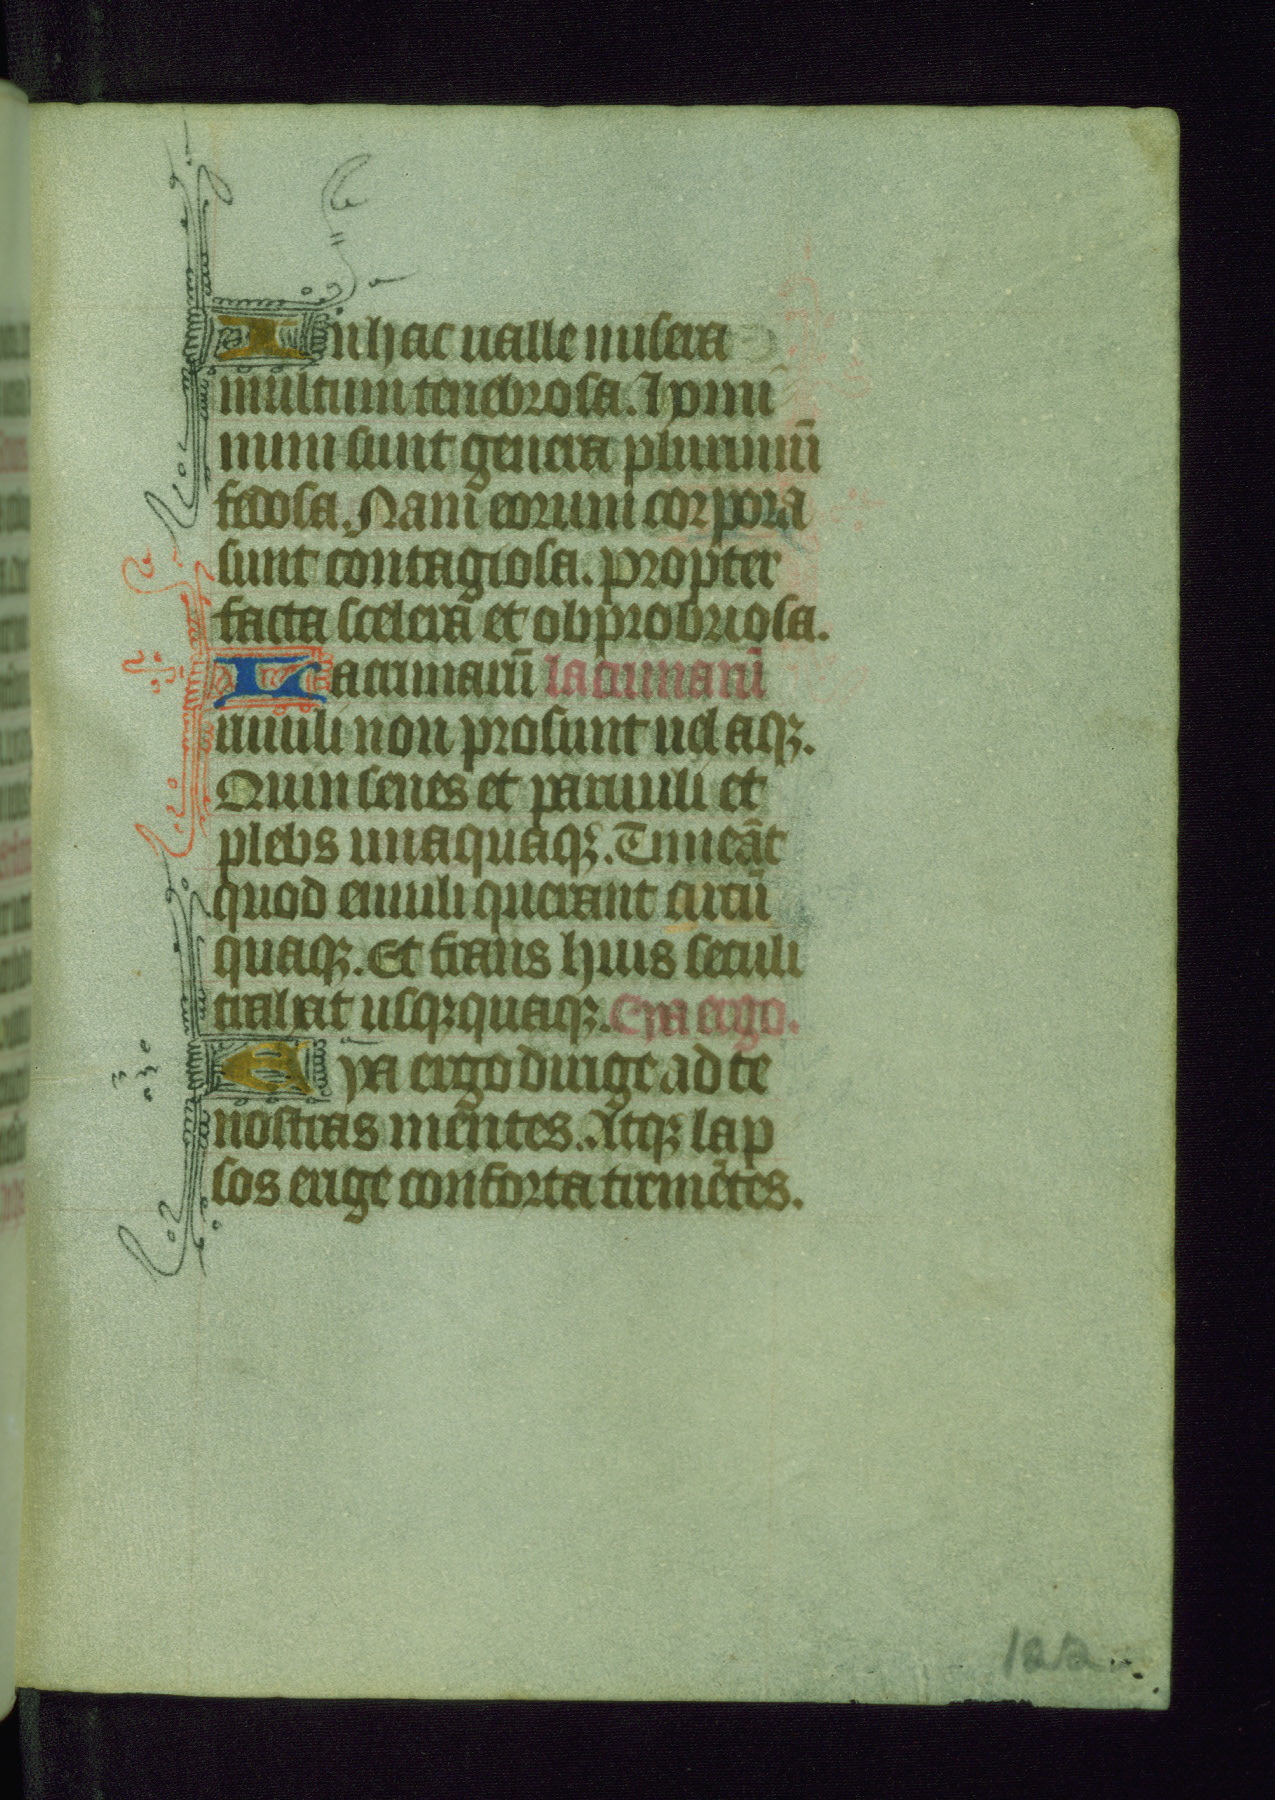 In hac ualle misera
multum tenebrosa. Ipmi
num sunt genera plurimū
fedosa. Nam eorum corpora
sunt contagiosa. propter
facta scelera et obprobriosa.
Lacrimarū lacrimarū
riuuli non prosunt uel aqꝫ.
Quin senes et paruuli et
plebs unaquaqꝫ. Timeāt
quod emuli querant circū
quaqꝫ. Et fraus huius seculi
trahat usqꝫquaqꝫ. Eya ergo.
Eya ergo dirige ad te
nostras mentes. Atqꝫ lap
sos erige conforta tremētes.